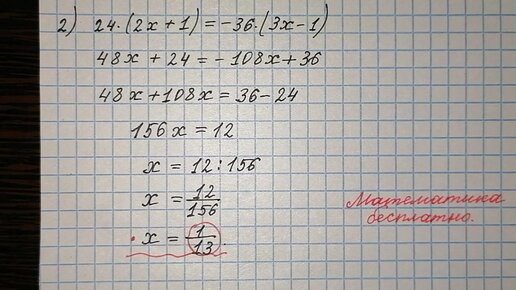 2) 24·(2x+1)=-36·(3x-1)
48x+24=-108x+36
48x+108x=36-24
156x=12
x=12:156
x=12/156
x=1/13
Математика
бесплатно.